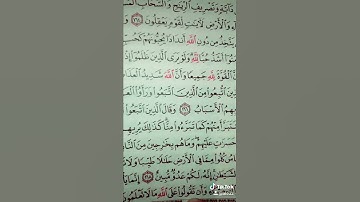 دَآبَّةٍ وَتَصْرِيفِ ٱلرِّيَٰحِ وَٱلسَّحَابِ
وَٱلْأَرْضِ لَءَايَٰتٍ لِّقَوْمٍ يَعْقِلُونَ ١٦٤
يَتَّخِذُ مِن دُونِ ٱللَّهِ أَندَادًا يُحِبُّونَهُمْ كَحُبِّ
أَشَدُّ حُبًّا لِّلَّهِ وَلَوْ يَرَى ٱلَّذِينَ ظَلَمُوٓا۟
ٱلْقُوَّةَ لِلَّهِ جَمِيعًا وَأَنَّ ٱللَّهَ شَدِيدُ ٱلْعَذَابِ
ٱلَّذِينَ ٱتُّبِعُوا۟ مِنَ ٱلَّذِينَ ٱتَّبَعُوا۟ وَرَأَوُا۟
بِهِمُ ٱلْأَسْبَابُ ١٦٦ وَقَالَ ٱلَّذِينَ
فَنَتَبَرَّأَ مِنْهُمْ كَمَا تَبَرَّءُوا۟ مِنَّا كَذَٰلِكَ يُرِيهِمُ
حَسَرَٰتٍ عَلَيْهِمْ وَمَا هُم بِخَٰرِجِينَ مِنَ
كُلُوا۟ مِمَّا فِى ٱلْأَرْضِ حَلَٰلًا طَيِّبًا
ٱلشَّيْطَٰنِ إِنَّهُۥ لَكُمْ عَدُوٌّ مُّبِينٌ ١٦٨ إِنَّمَا
وَأَن تَقُولُوا۟ عَلَى ٱللَّهِ مَا لَا تَعْلَمُونَ
TikTok